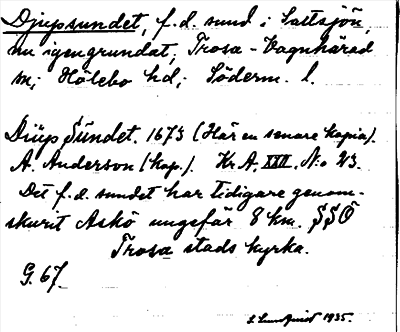 Djupsundet, f. d. sund i Saltsjön,
nu igengrundat, Trosa-Vagnhärad
sn; Hölebo hd; Söderm. l.
Diüp Sündet. 1673 (Här en senare kopia).
A. Anderson (kop.). Kr. A. XXII. No 23.
Det f. d. sundet har tidigare genom-
skurit Askö ungefär 8 km. SSÖ
Trosa stads kyrka.
G. 67.
S. Lundquist 1935.